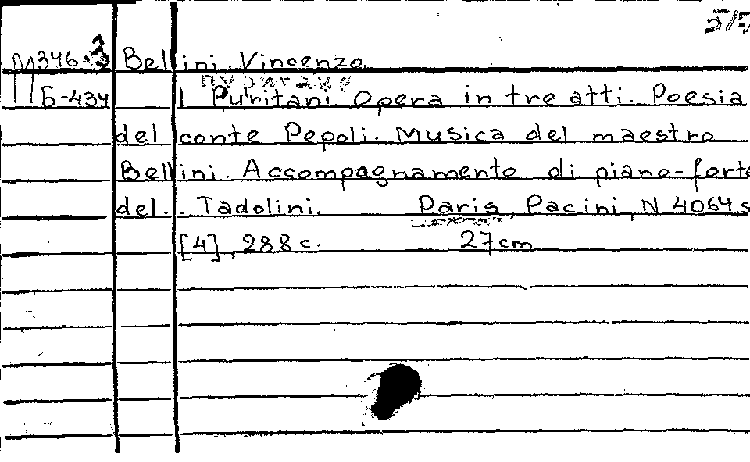 M346.3 Bellini Vincenzo
Б-434 I Puritani Opera in tre atti. Poesia
del conte Pepoli. Musica del maestro
Bellini. Accompagnamento di piano-forte
del. Tadolini. Paris, Pacini, N 4064s
[4], 288 c. 27cm